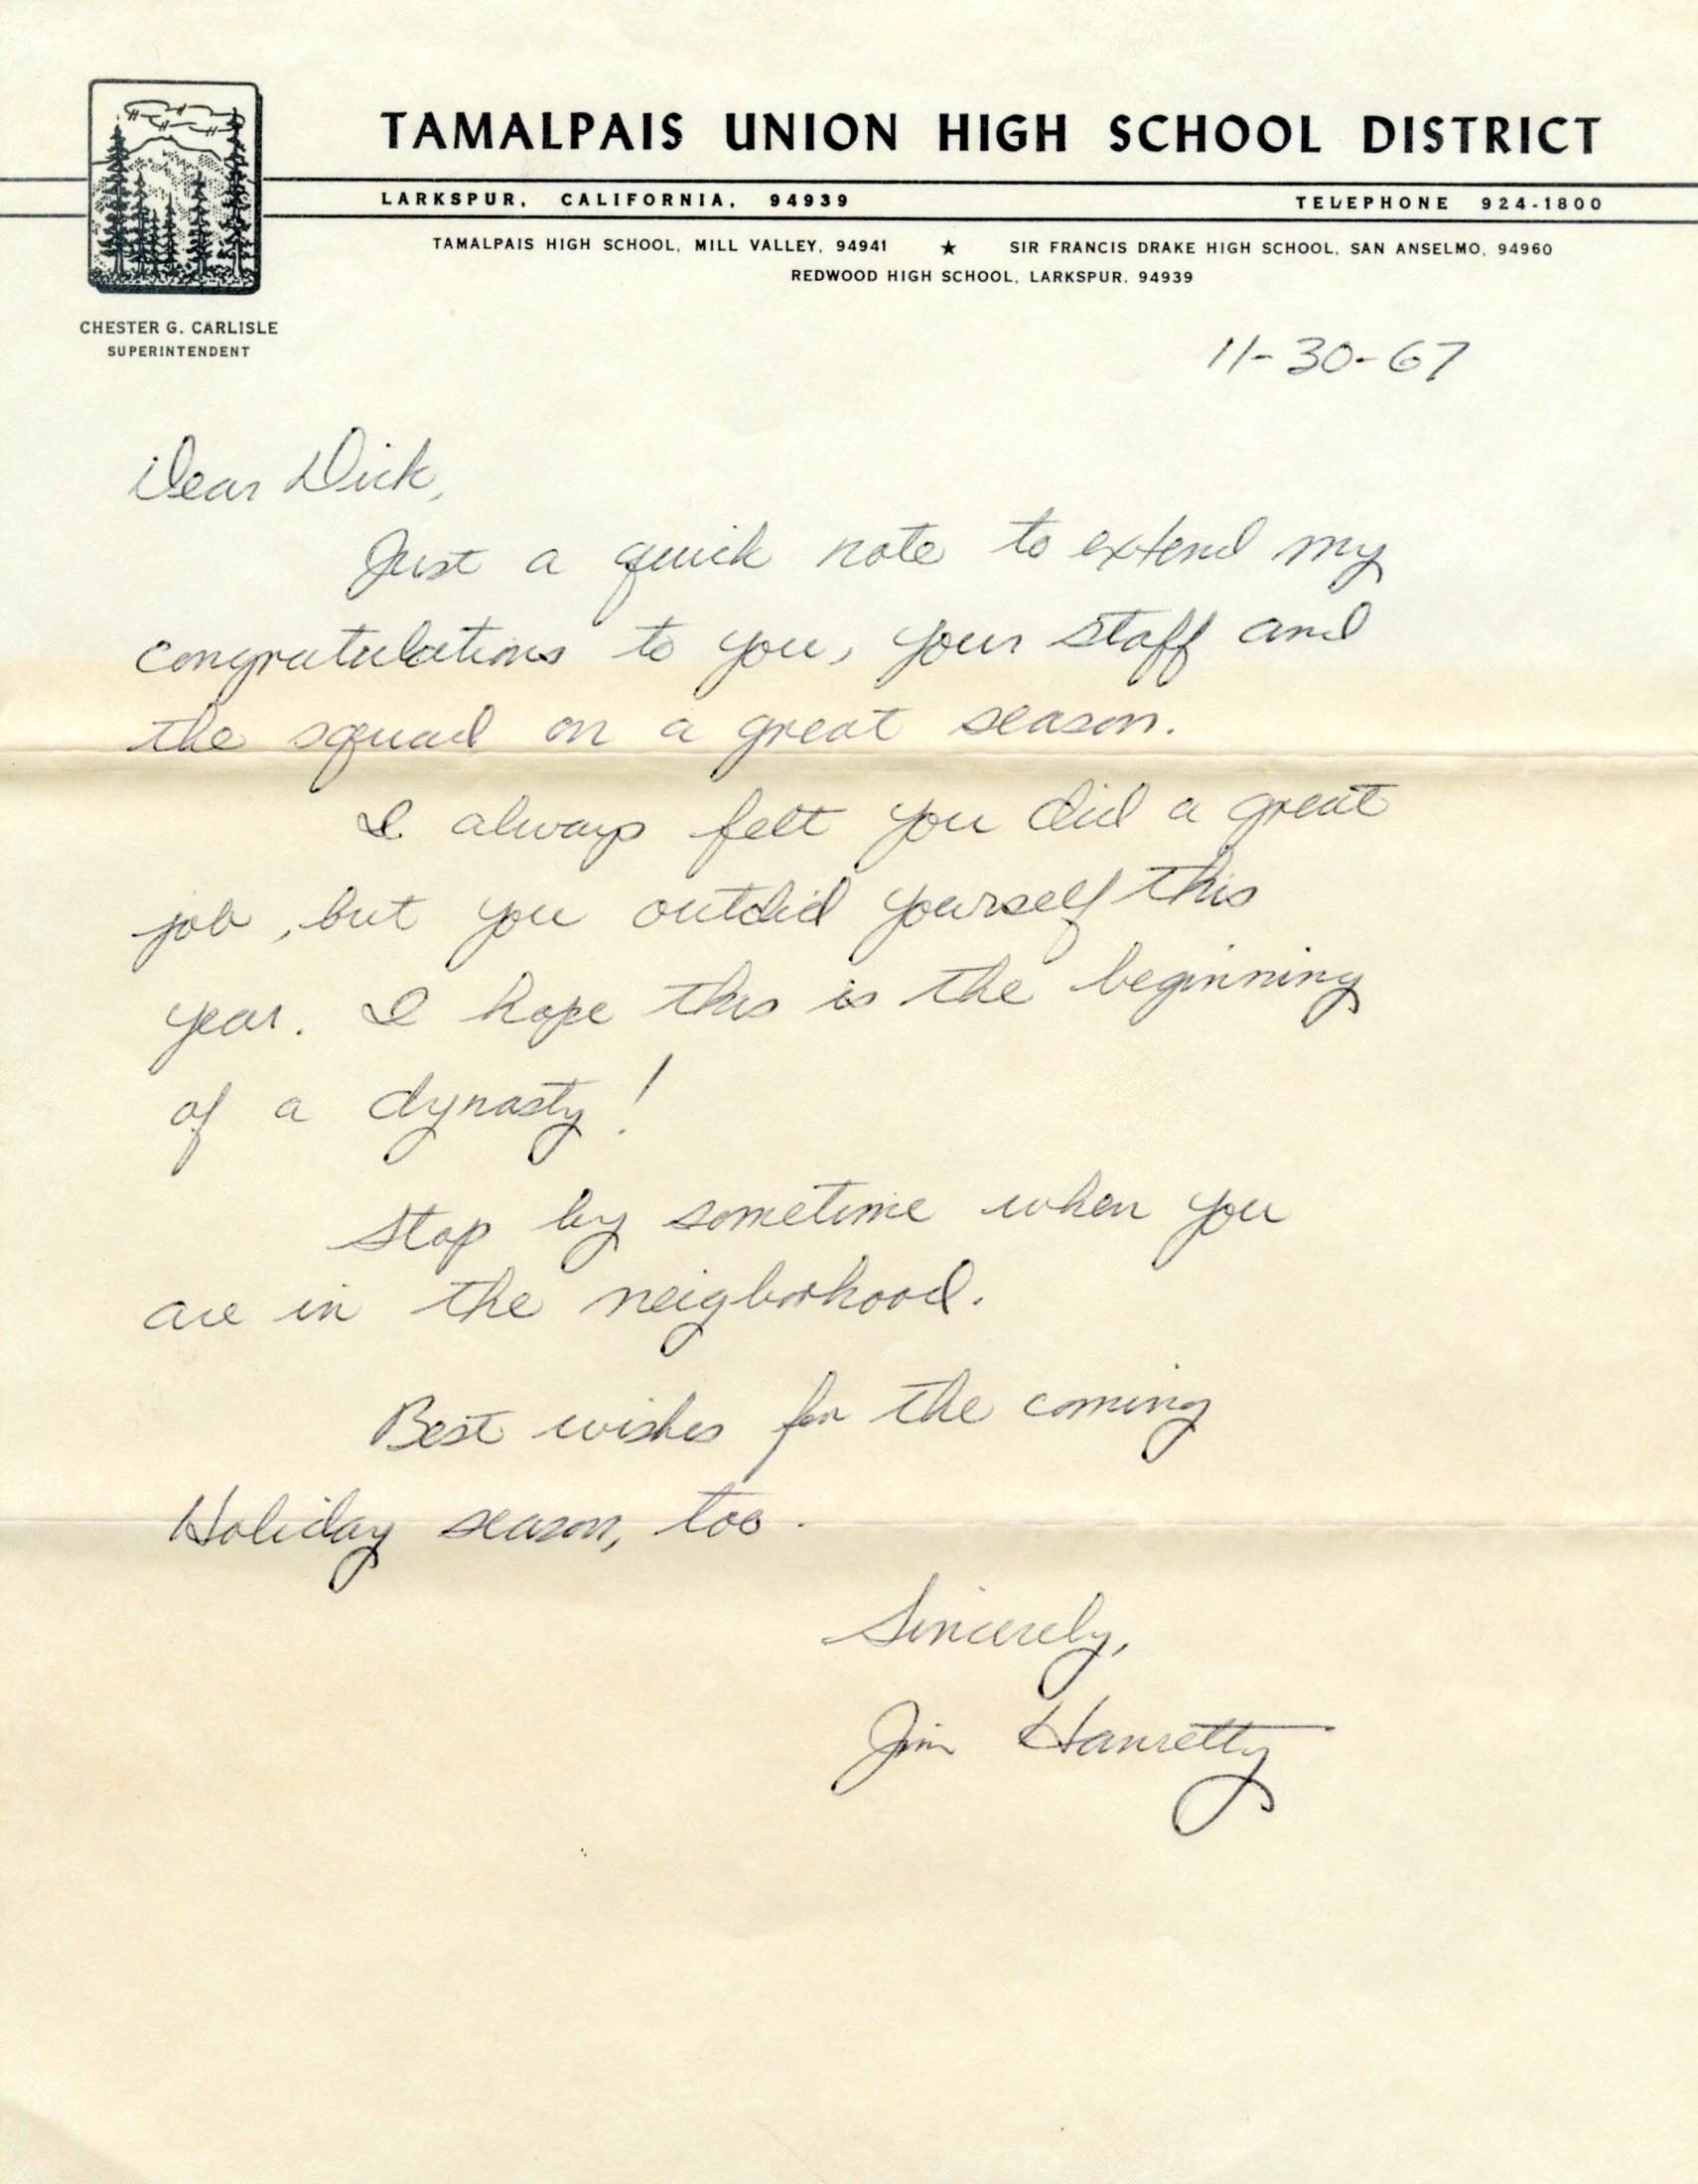 TAMALPAIS UNION HIGH SCHOOL DISTRICT
LARKSPUR, CALIFORNIA, 94939 TELEPHONE 924-1800
TAMALPAIS HIGH SCHOOL, MILL VALLEY, 94941 ★ SIR FRANCIS DRAKE HIGH SCHOOL, SAN ANSELMO, 94960
REDWOOD HIGH SCHOOL, LARKSPUR, 94939
CHESTER G. CARLISLE
SUPERINTENDENT
11-30-67
Dear Dick,
Just a quick note to extend my
congratulations to you, your staff and
the squad on a great season.
I always felt you did a great
job, but you outdid yourself this
year. I hope this is the beginning
of a dynasty!
Stop by sometime when you
are in the neigborhood.
Best wishes for the coming
Holiday season, too.
Sincerely,
Jim Hanretty